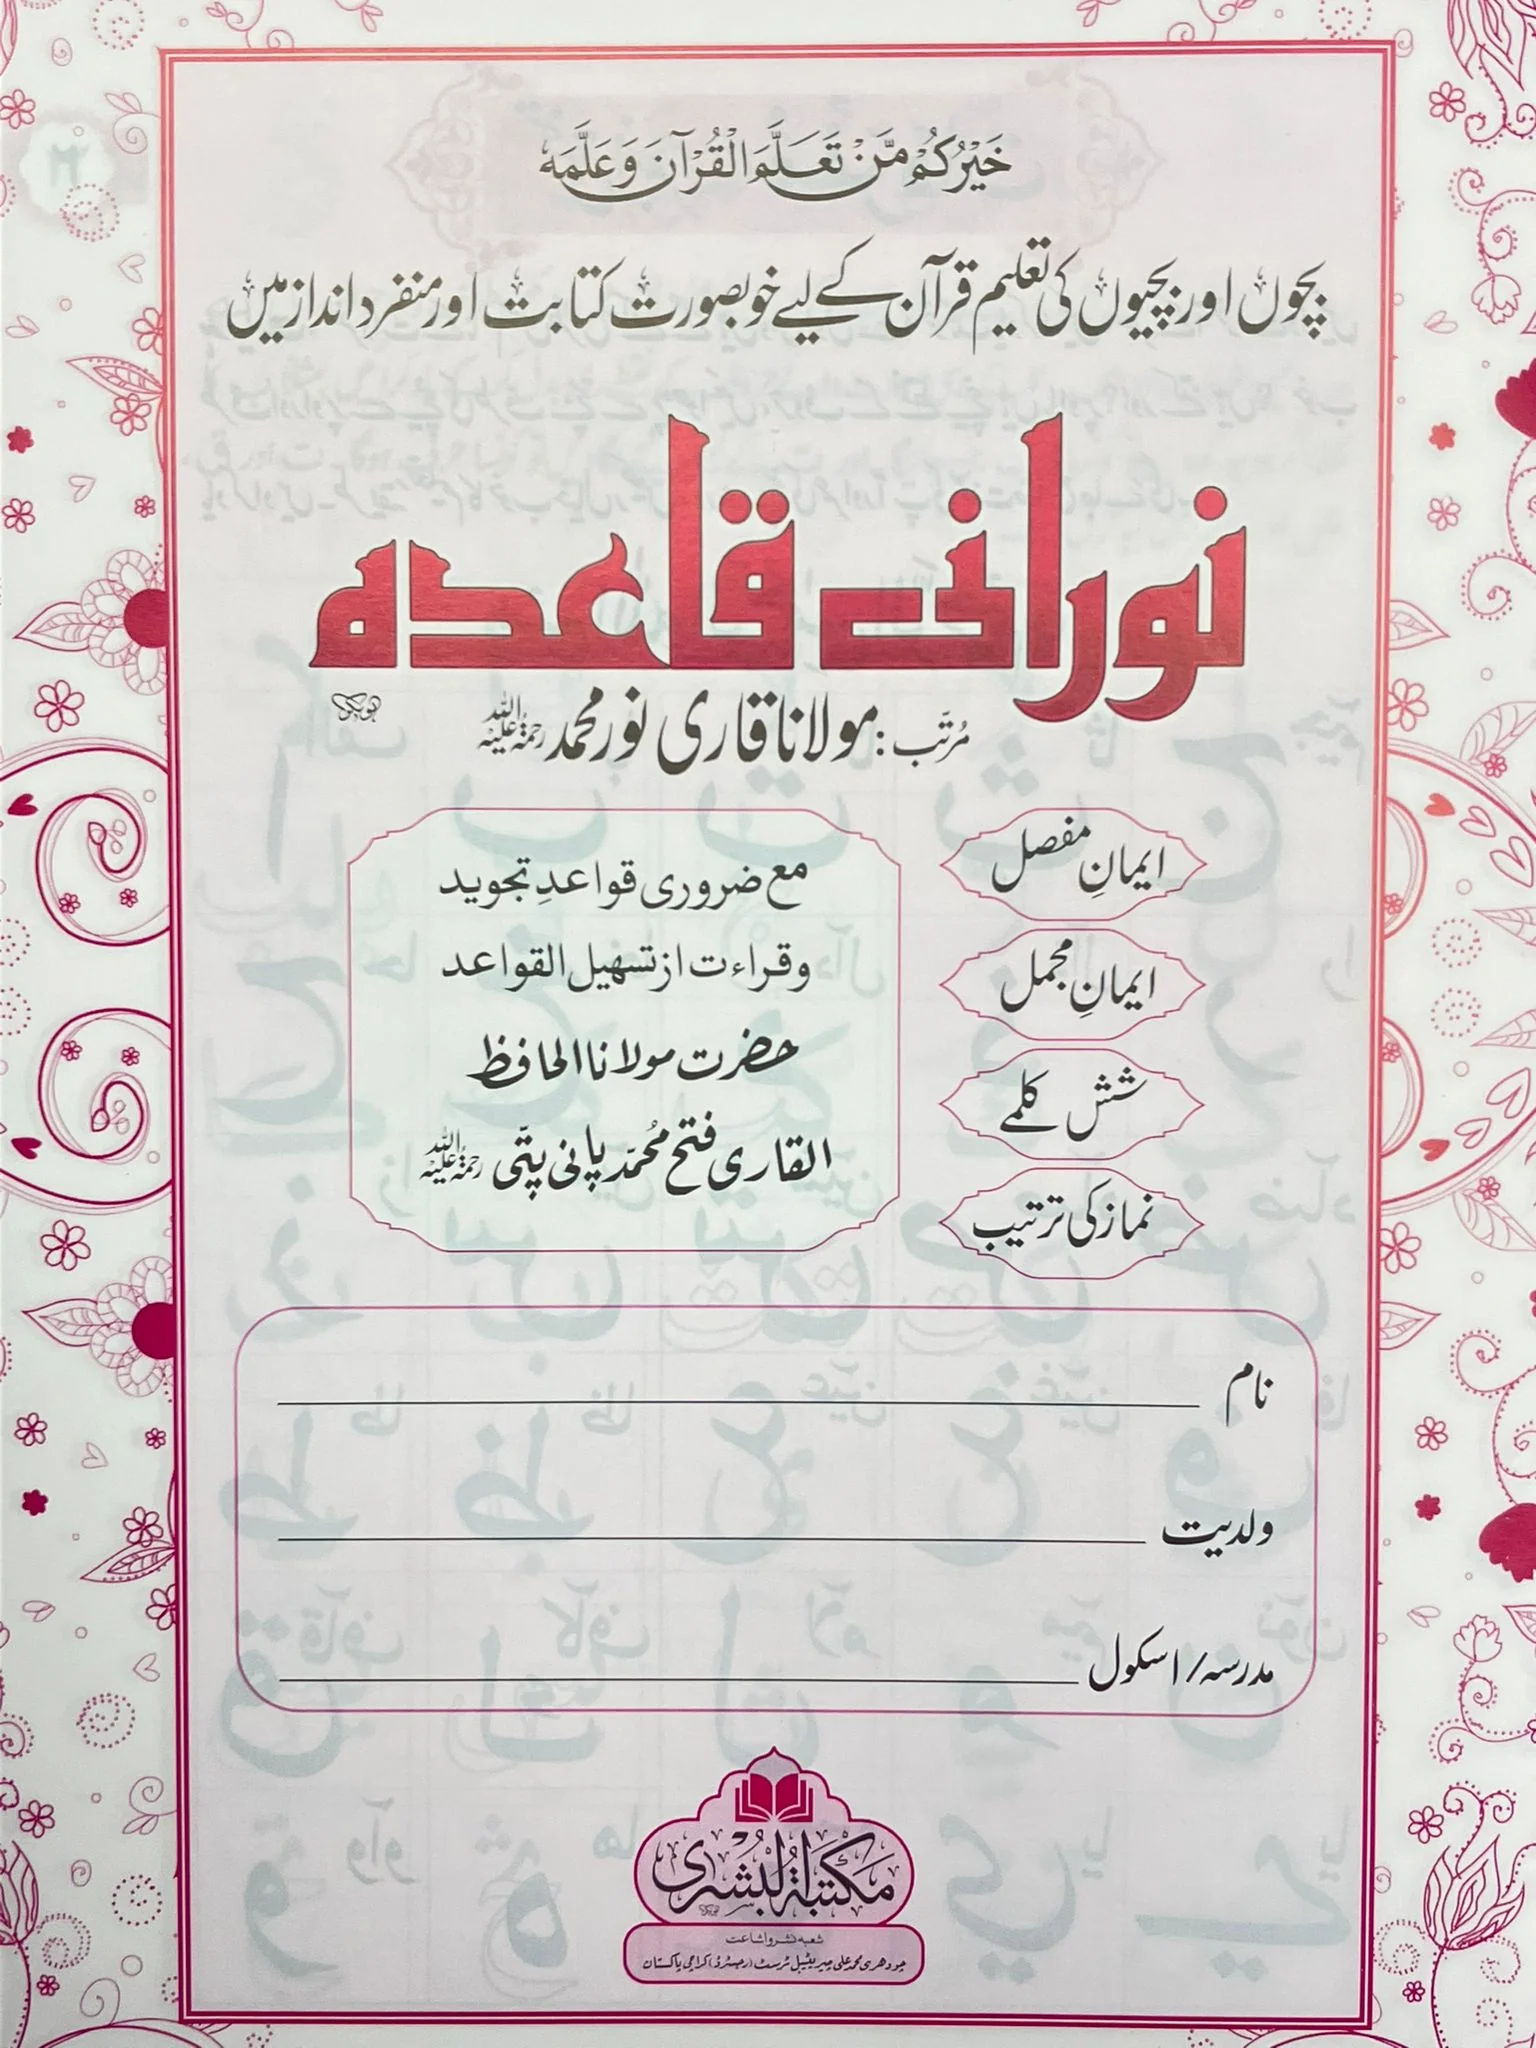 خَيْرُكُمْ مَّنْ تَعَلَّمَ الْقُرْآنَ وَعَلَّمَهُ
بچوں اور بچیوں کی تعلیم قرآن کے لیے خوبصورت کتابت اور منفرد انداز میں
نورانی قاعدہ
مُرتّب: مولانا قاری نور محمد رحمۃ اللہ علیہ
ایمانِ مفصل
ایمانِ مجمل
شش کلمے
نماز کی ترتیب
مع ضروری قواعدِ تجوید
وقراءت از تسہیل القواعد
حضرت مولانا الحافظ
القاری فتح محمّد پانی پتّی رحمۃ اللہ علیہ
نام
ولدیت
مدرسہ/اسکول
مَكتَبَةُ الْبُشْرٰى
شعبہ نشر واشاعت
چودھری محمد علی چیریٹیبل ٹرسٹ (رجسٹرڈ) کراچی پاکستان